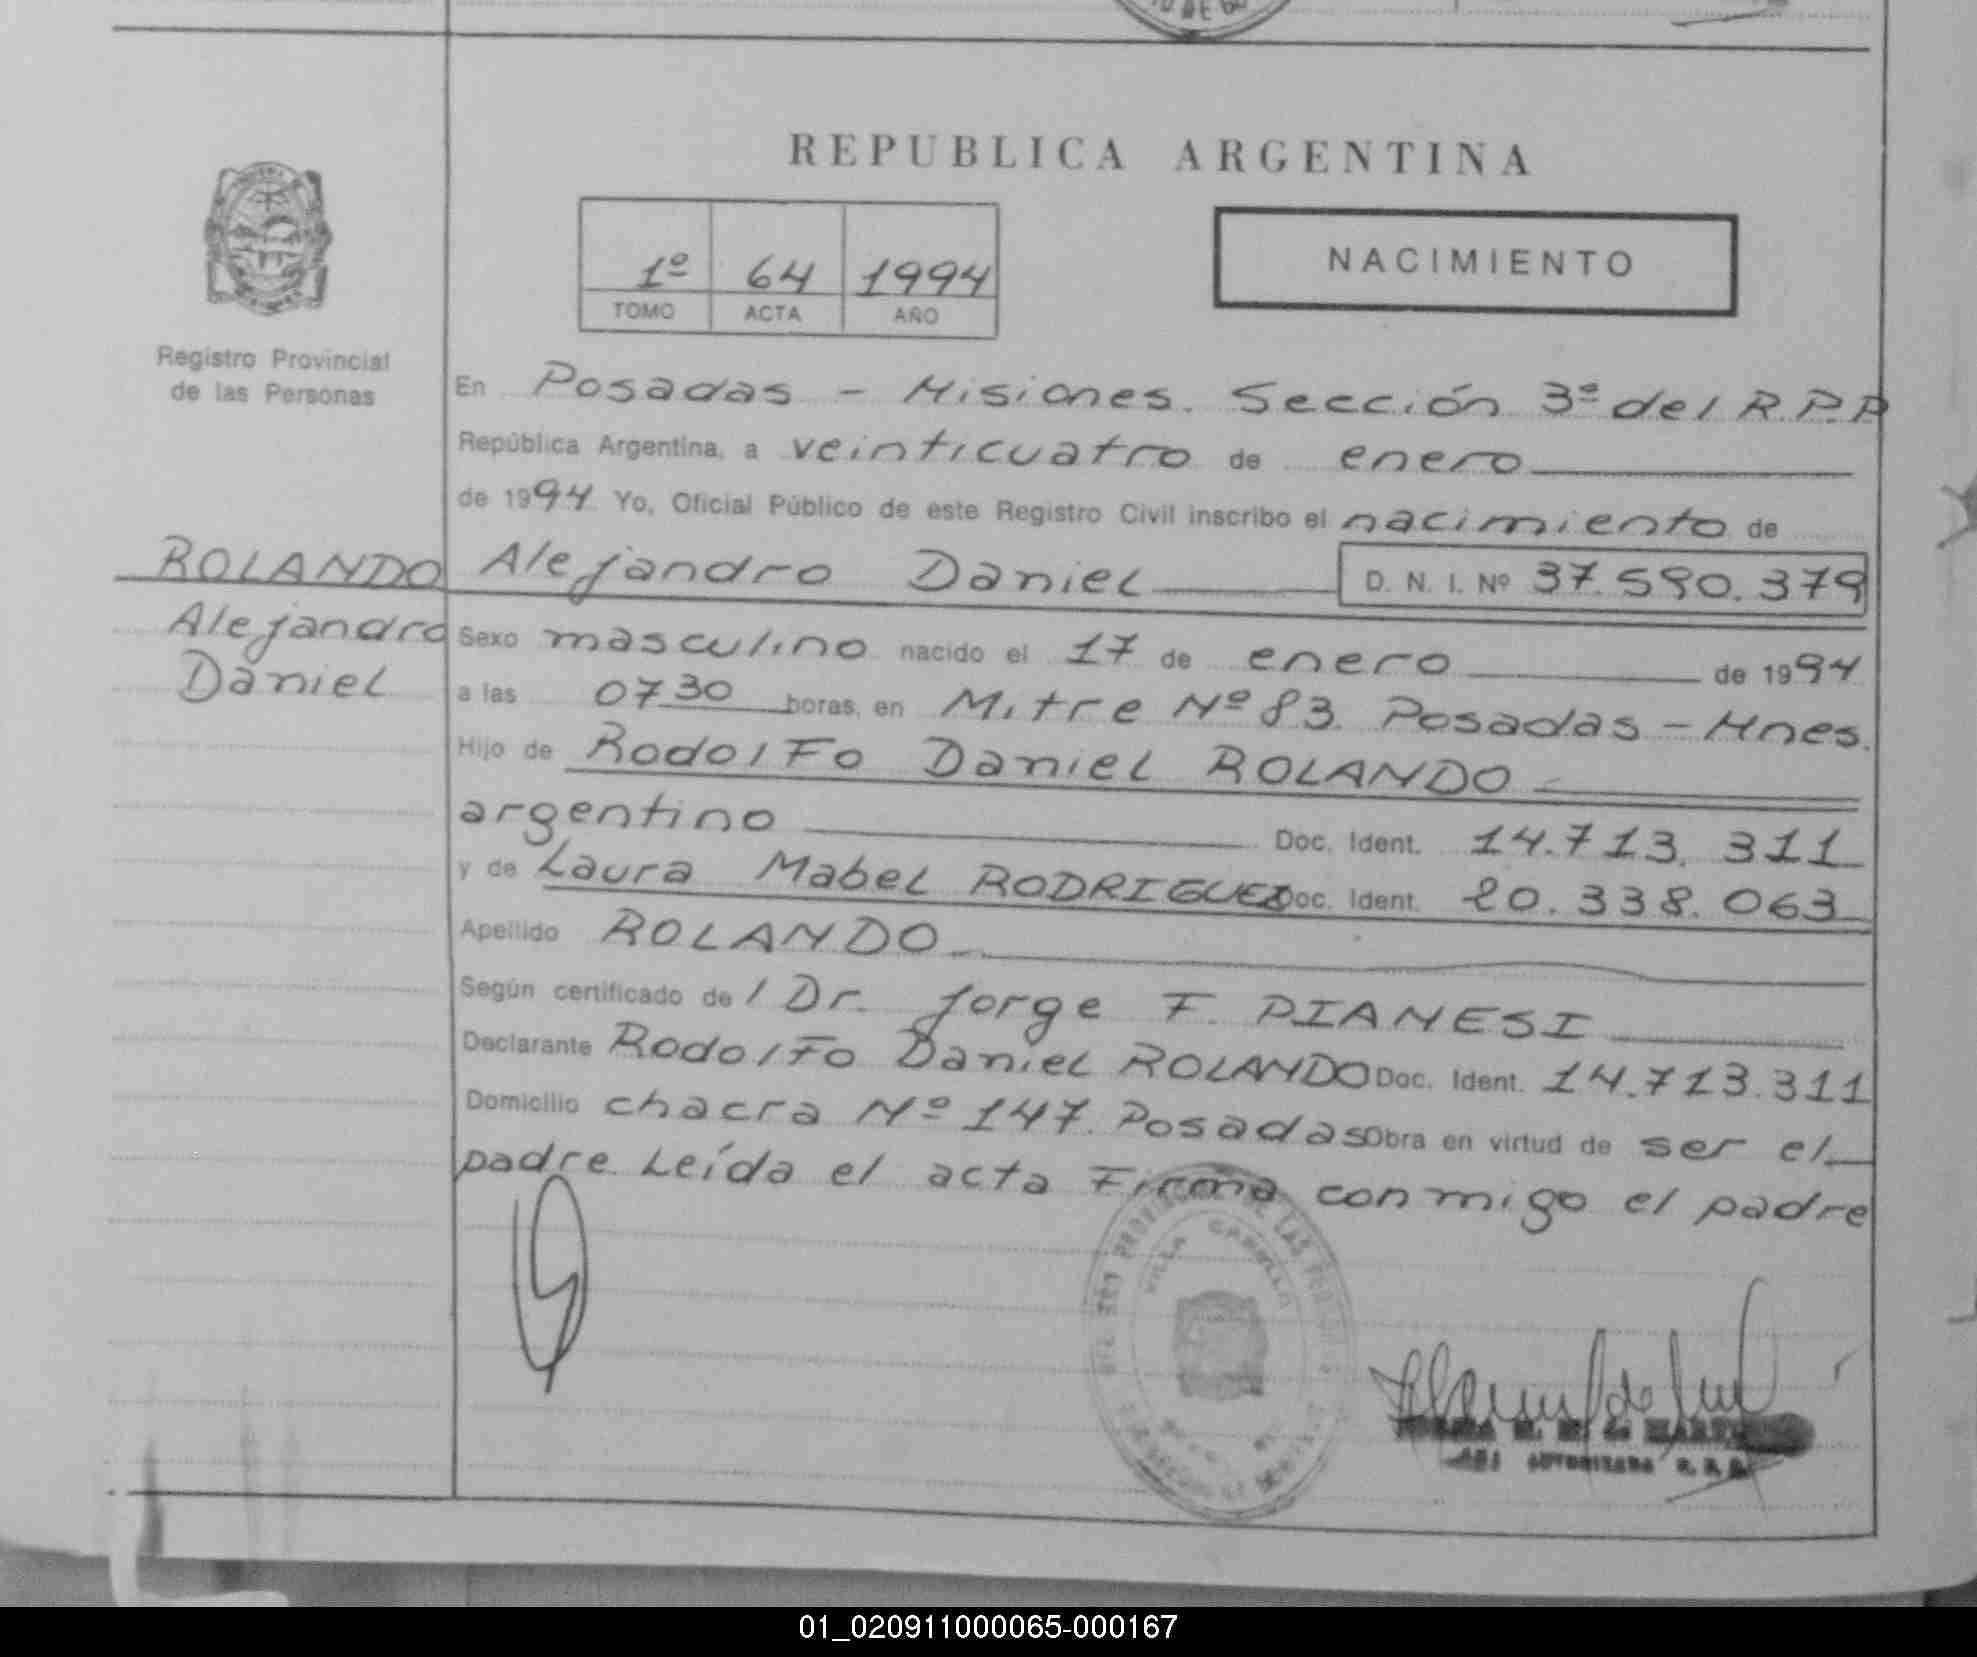 REPUBLICA ARGENTINA
1º 64 1994
TOMO ACTA AÑO
NACIMIENTO
Registro Provincial
de las Personas
En Posadas - Misiones. Sección 3ª del R.P.P
República Argentina, a veinticuatro de enero
de 1994 Yo, Oficial Público de este Registro Civil inscribo el nacimiento de
ROLANDO Alejandro Daniel D. N. I. Nº 37.590.379
Alejandro
Daniel
Sexo masculino nacido el 17 de enero de 1994
a las 07 30 horas, en Mitre Nº 83. Posadas - Mnes.
Hijo de Rodolfo Daniel ROLANDO
argentino Doc. Ident. 14.713.311
y de Laura Mabel RODRIGUEZ Doc. Ident. 20.338.063
Apellido ROLANDO
Según certificado de / Dr. Jorge F. PIANESI
Declarante Rodolfo Daniel ROLANDO Doc. Ident. 14.713.311
Domicilio chacra Nº 147. Posadas Obra en virtud de ser el
padre. Leída el acta Firma conmigo el padre
VILLA CABELLO
AUTORIZADA R. P. P.
01_020911000065-000167